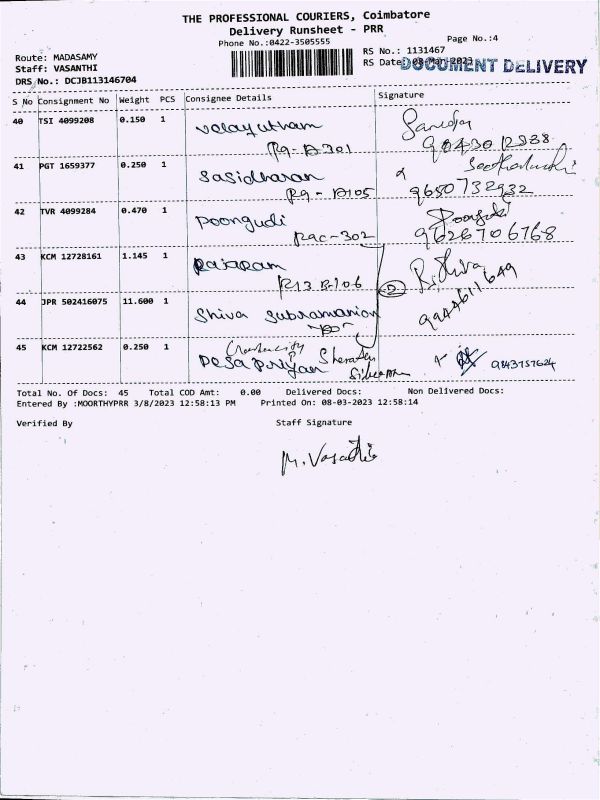 THE PROFESSIONAL COURIERS, Coimbatore
Delivery Runsheet - PRR
Phone No.:0422-3505555
Page No.:4
Route: MADASAMY
RS No.: 1131467
Staff: VASANTHI
RS Date: 08-Mar-2023
DOCUMENT DELIVERY
DRS No.: DCJB113146704
S No Consignment No Weight PCS Consignee Details Signature
40 TSI 4099208 0.150 1 Velayutham
R9-A-301 98430 12338
41 PGT 1659377 0.250 1 Sasidharan
R9-A105 9650732932
42 TVR 4099284 0.470 1 Poongudi Poongudi
R9C-302 9626706768
43 KCM 12728161 1.145 1 Rajaram
R13 B-106 9944611649
44 JPR 502416075 11.600 1 Shiva Subramanian
-do-
45 KCM 12722562 0.250 1 Desapriyan 9843757624
Total No. Of Docs: 45 Total COD Amt: 0.00 Delivered Docs: Non Delivered Docs:
Entered By :MOORTHYPRR 3/8/2023 12:58:13 PM Printed On: 08-03-2023 12:58:14
Verified By Staff Signature
M. Vasanthi